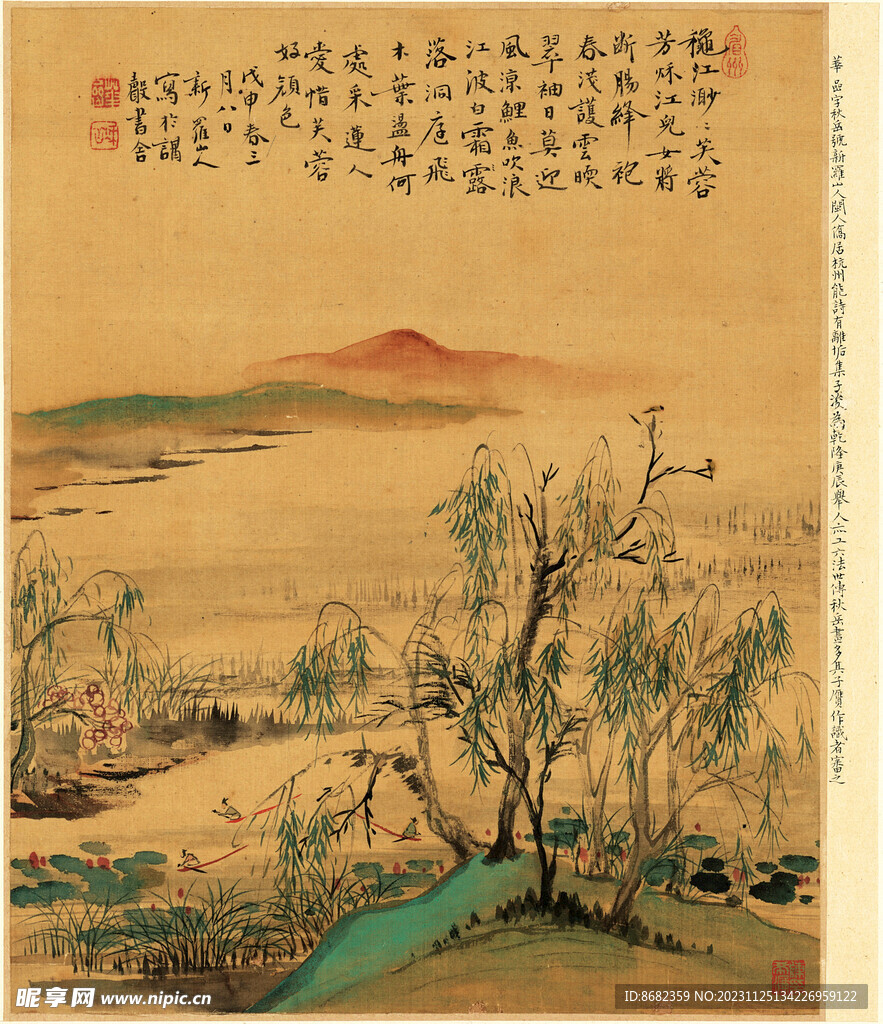 穐江渺〻芙蓉
芳秌江兒女將
斷腸絳袍
春淺護雲暖
翠袖日莫迎
風涼鯉魚吹浪
江波白霜露
落洞庭飛
木葉盪舟何
處采蓮人
愛惜芙蓉
好顔色
戊申春三
月八日
新羅山人
寫於講
聲書舍
華嵒字秋岳號新羅山人閩人僑居杭州能詩有離垢集子浚為乾隆庚辰舉人亦工六法世傳秋岳畫多其子贋作識者審之
昵享网 www.nipic.cn
ID:8682359 NO:20231125134226959122